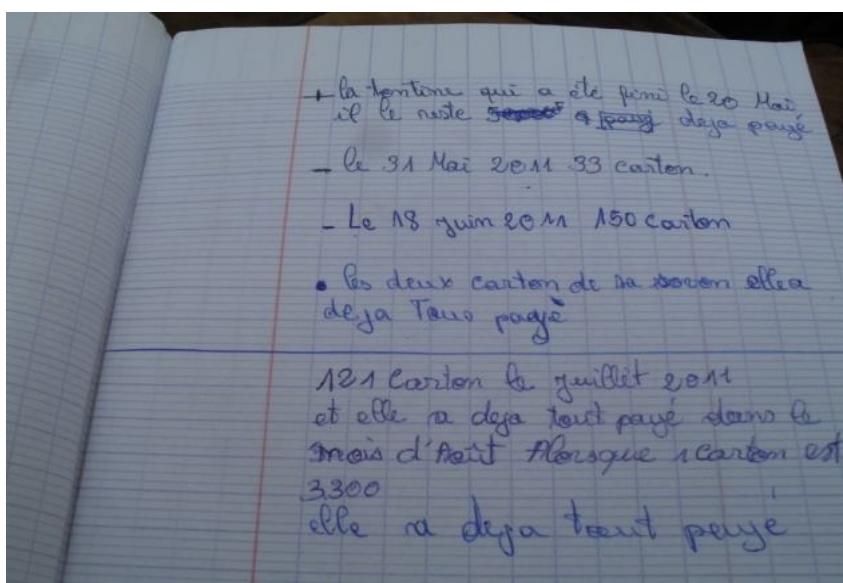 + la tontine qui a été fini le 20 Mai
il le reste deja payé
- le 31 Mai 2011 33 carton.
- Le 18 juin 2011 150 Carton
• les deux carton de sa elle a
deja Tous payè
121 Carton le juillèt 2011
et elle a deja tout payé dans le
mois d'Août Alorsque 1 carton est
3300
elle a deja tout payé